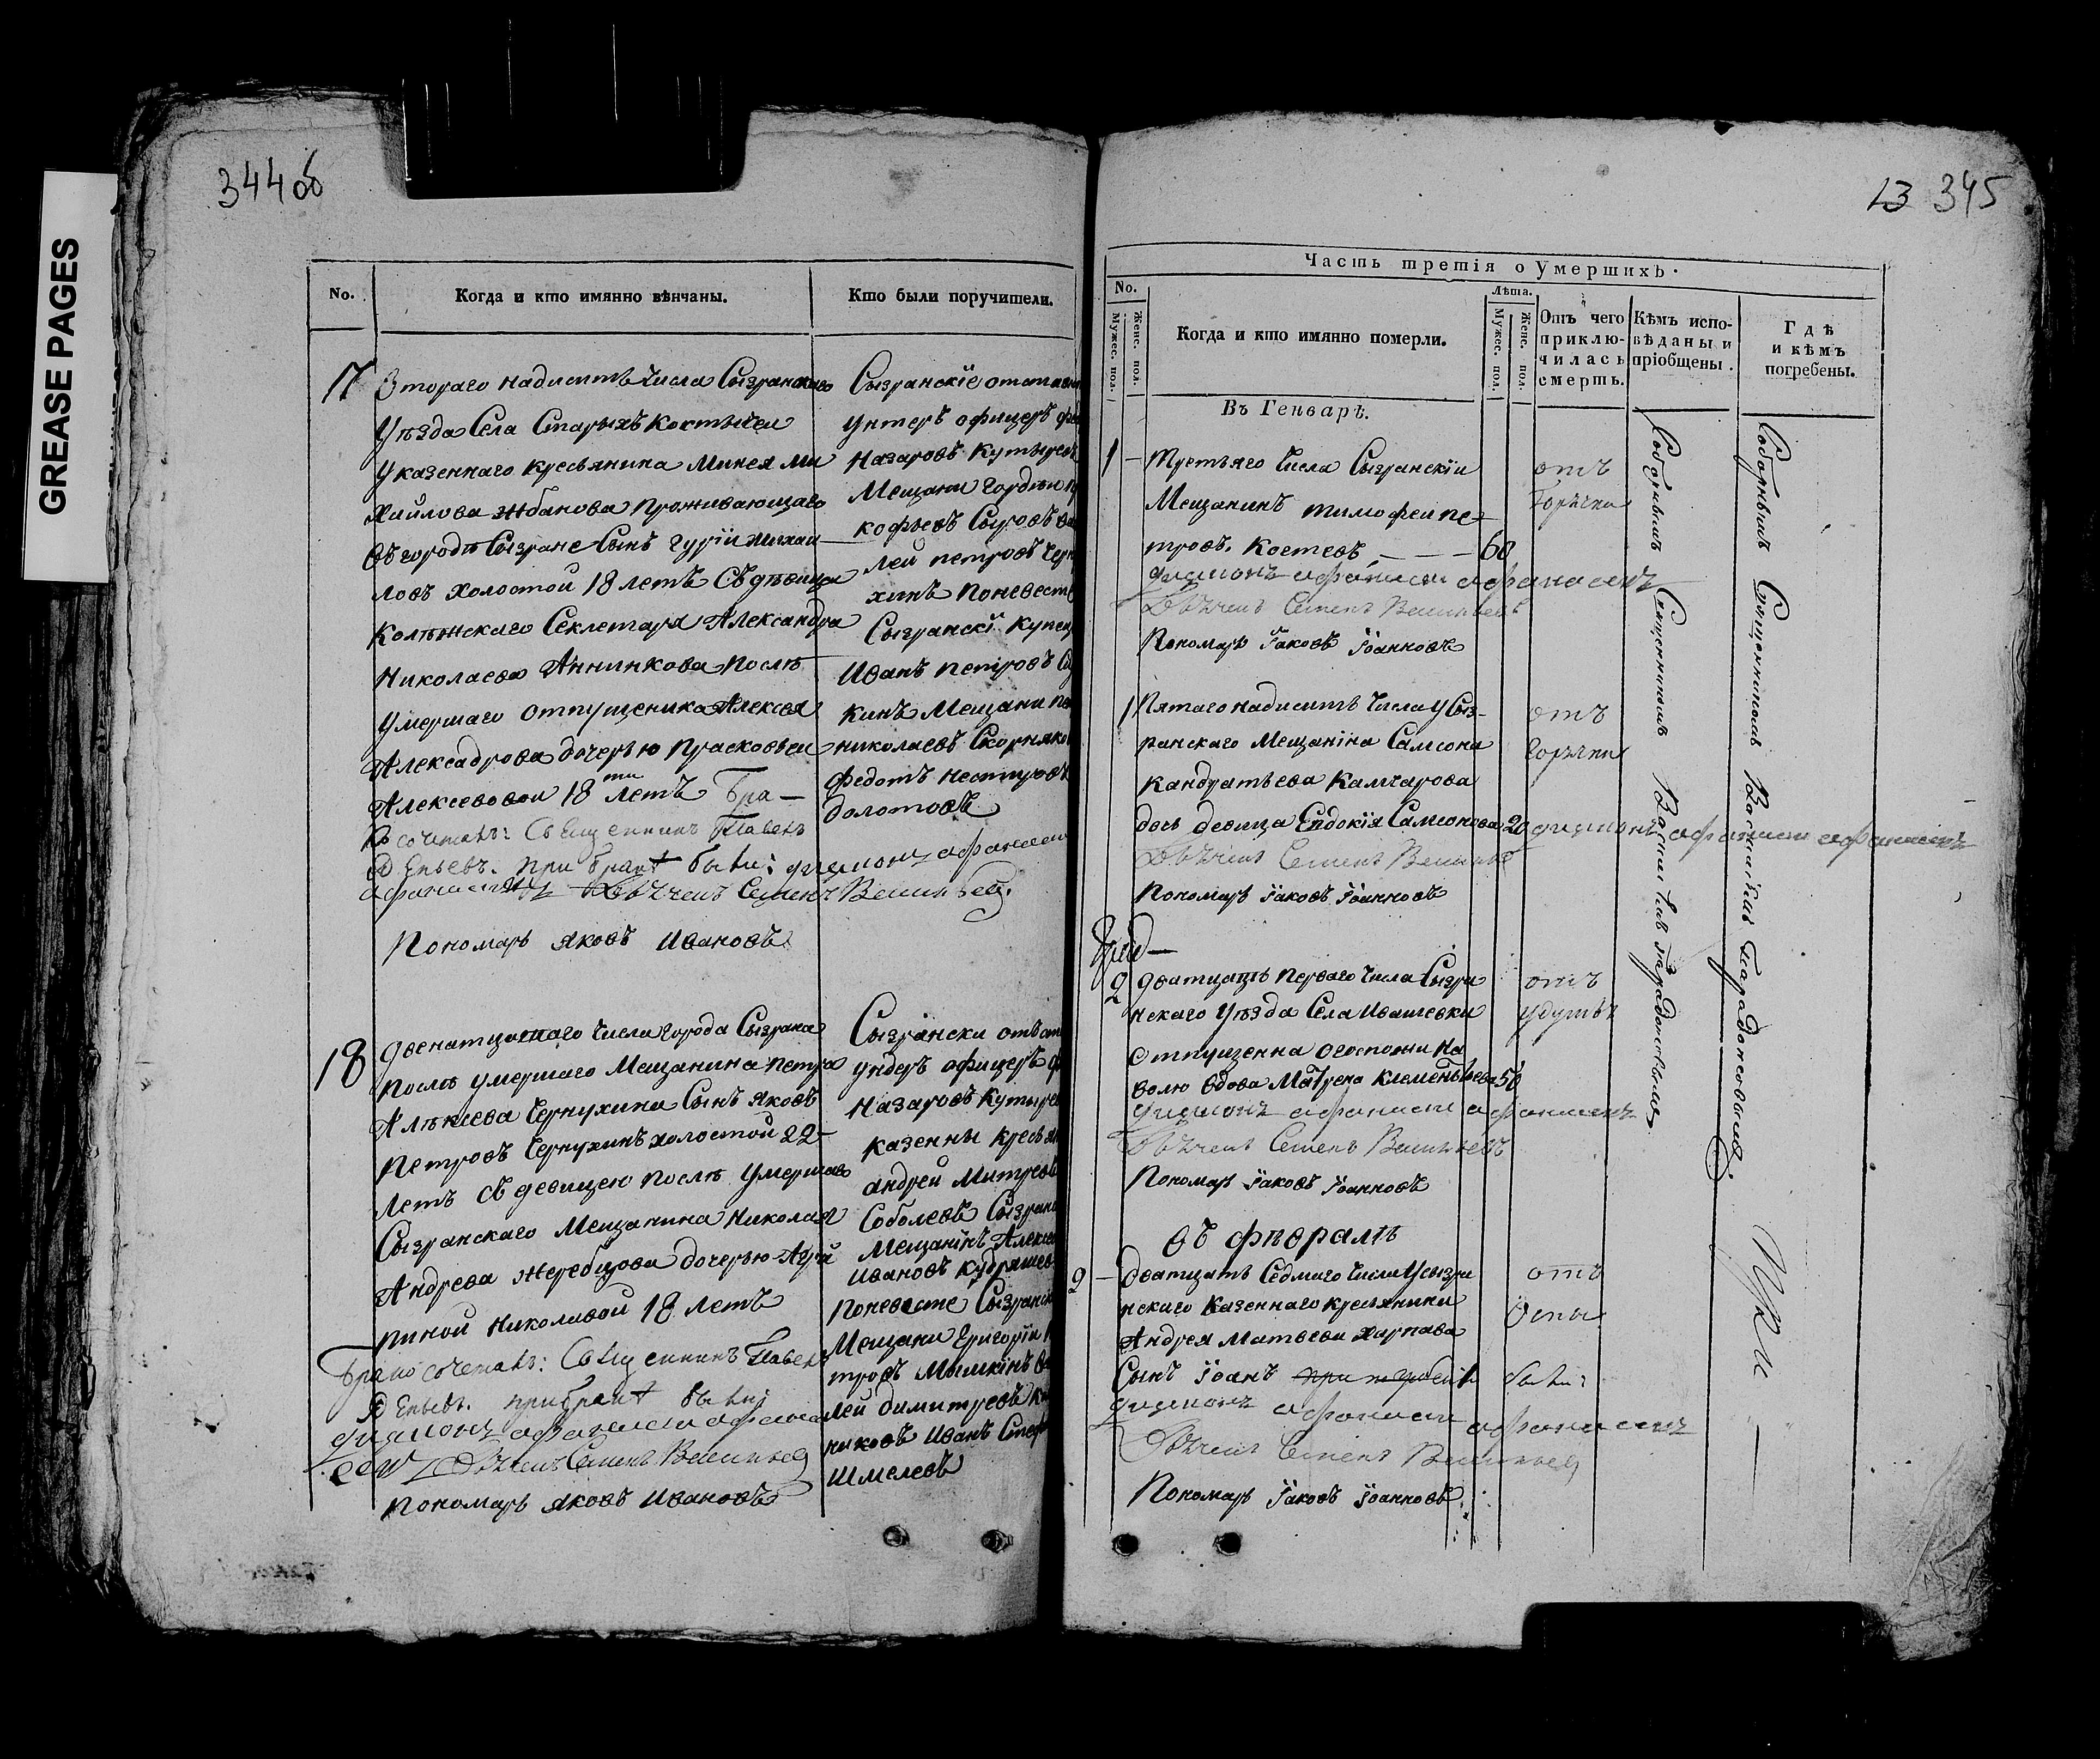 GREASE PAGES
344 об
No.
Когда и кто имянно вѣнчаны.
Кто были поручители.
17
Втораго надисить числа Сызранскаго
Уѣзда Села Старыхъ Костычеи
Указеннаго Кресьянина Минея Ми
хаилова Жбанова проживающаго
въ городѣ Сызране Сынъ Гурїи михаи
ловъ холостой 18 летъ Съ дѣвицеи
Колѣжскаго Секлетаря Александра
Николаева Аннинкова послѣ
умершаго отпущеника Алексея
Алексадрова дочерью Прасковьеи
Алексеевои 18ти летъ Бра-
къ сочеталъ: Священникъ Павелъ
при бракѣ были: диаконъ афанасеи
афанасевъ Дьячекъ Семенъ Васильевъ
Пономарь Яковъ Ивановъ
Сызранскїе отстав
унтеръ офицеръ
Назаровъ Кутыревъ
Мещани Гордѣи
кофьевъ Сыровъ
леи петровъ
хинъ поневест
Сызранскї Купец
Иванъ Петровъ
кинъ Мещани
николаевъ Скорняко
Федотъ Нестеровъ
долотовъ
18
двенатцатаго числа города Сызрана
послѣ умершаго Мещанина петра
Алѣксеева Чернухина Сынъ Яковъ
Петровъ Чернухинъ холостой 22-
летъ съ девицею послѣ умершаво
Сызранскаго Мещанина Николая
Андрева Жеребцова дочерью Агри
пиной Николавой 18 летъ
Бракосочеталъ: Священникъ Павелъ
при бракѣ были
диаконъ афанасеи афанас
евъ Дьячекъ Семенъ Васильевъ
Пономарь Яковъ Ивановъ
Сызрански отъст
ундеръ офицеръ
Назаровъ Кутыре
казенны кресья
андреи Митревъ
Соболевъ Сызран
Мещанїнъ Алексе
Ивановъ Кудряшев
Поневесте Сызранск
Мещани Григорїи
тровъ Мымкїнъ
леи димитревъ
никовъ Иванъ
Шмелевъ
13 345
Часть третія о умершихъ.
No.
Мужес. пол.
Женс. пол.
Когда и кто имянно померли.
Лѣта.
Мужес. пол.
Женс. пол.
Отъ чего приклю-чилась смерть.
Кѣмъ испо-вѣданы и пріобщены.
Гдѣ и кѣмъ погребены.
Въ Генварѣ.
1 - Третьяго числа Сызранскїи
Мещанинъ тимофеи пе-
тровъ Костевъ - - - 60
отъ
Горячки
диаконъ афанасеи афанасевъ
Дьячекъ Семенъ Васильевъ
Пономарь Їаковъ Їоанновъ
1 Пятаго надисить числа У Сыз-
ранскаго Мещанїна Самсона
Кандратьева Камчарова
дочь девица Евдокїя Самсонова 20
отъ
Горячки
диаконъ афанасеи афанасевъ
Дьячекъ Семенъ Васильевъ
Пономарь Їаковъ Їоанновъ
2 Дватцать перваго числа Сызра
нскаго Уѣзда Села Ивашевки
отпущенна огоспожи на
волю вдова Матрена Клементьева 50
отъ
удушья
диаконъ афанасеи афанасевъ
Дьячекъ Семенъ Васильевъ
Пономарь Їаковъ Їоанновъ
въ февралѣ
2 - Дватцать Седмаго числа У Сызра
нскаго Казеннаго кресьянина
Андрея Матвева Харпава
Сынъ Їоанъ при погребенїи были:
отъ
Оспы
диаконъ афанасеи афанасевъ
Дьячекъ Семенъ Васильевъ
Пономарь Їаковъ Їоанновъ
Соборнымъ Священникомъ
Соборнымъ Священникомъ